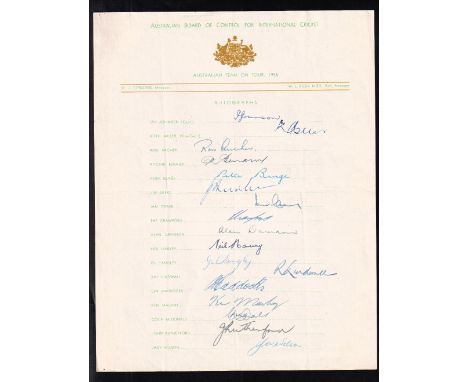 AUSTRALIAN BOARD OF CONTROL FOR INTERNATIONAL CRICKET
AUSTRALIAN TEAM ON TOUR, 1956
AUTOGRAPHS
IAN JOHNSON
KEITH MILLER
RON ARCHER Ron Archer
RICHIE BENAUD R Benaud
PETER BURGE Peter Burge
JIM BURKE
IAN CRAIG Ian Craig
PAT CRAWFORD
ALAN DAVIDSON Alan Davidson
NEIL HARVEY Neil Harvey
GIL LANGLEY Gil Langley
RAY LINDWALL R Lindwall
LEN MADDOCKS Maddocks
KEN MACKAY Ken Mackay
COLIN McDONALD
JOHN RUTHERFORD J Rutherford
JACK WILSON Jack Wilson